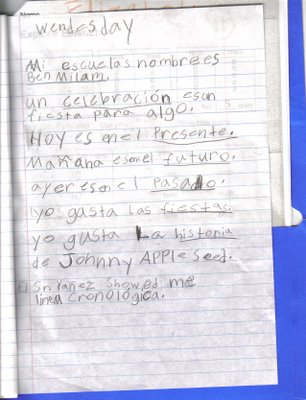 wendesday
Mi escuelas nombre es
Ben Milam.
un celebración es un
fiesta para algo.
Hoy es en el Presente.
Mañana es en el futuro.
ayer es en el pasado.
yo gusta las fiestas.
yo gusta La historia
de Johnny APPle seed.
El Sr. Yañez showed me
linea Cronológica.